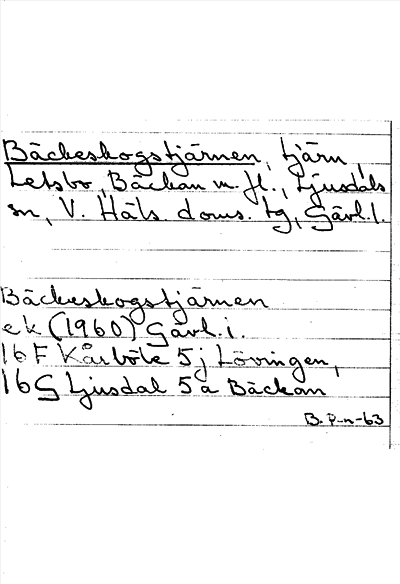 Bäckeskogstjärnen, tjärn,
Letsbo, Bäckan m. fl., Ljusdals
sn, V. Häls. doms. tg, Gävl. l.
Bäckeskogstjärnen
ek (1960) Gävl. i.
16 F Kårböle 5j Lövingen,
16 G Ljusdal 5a Bäckan
B. P-n-63